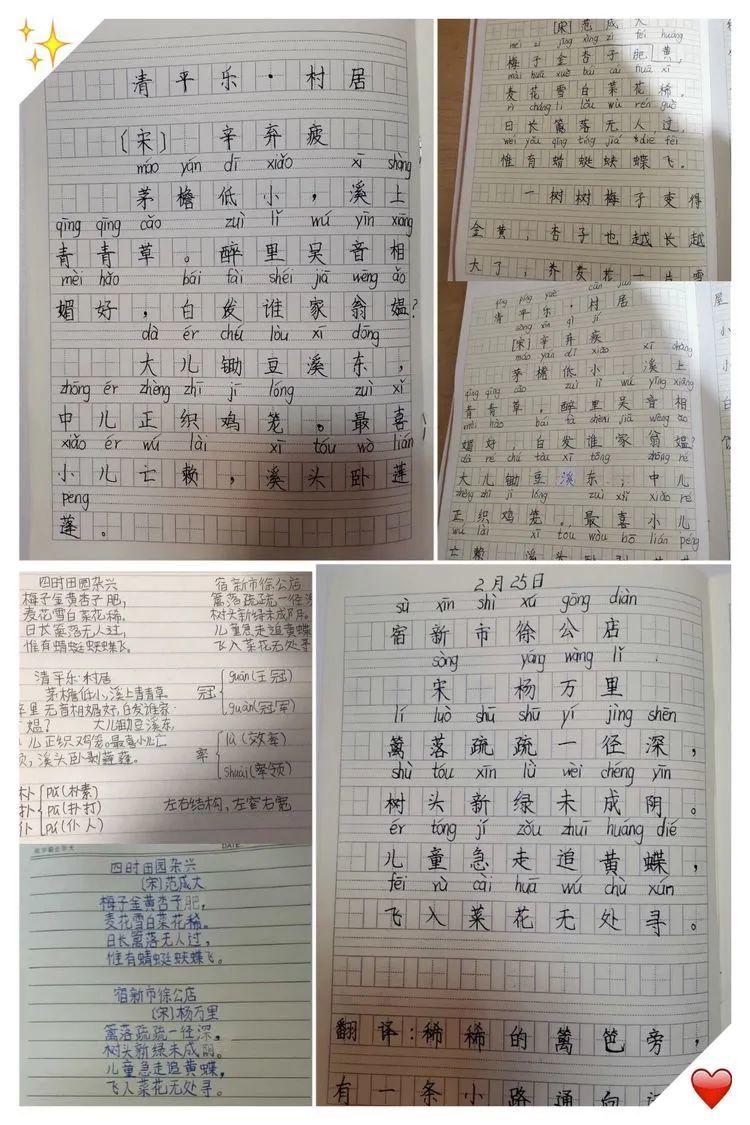 清平乐·村居
〔宋〕辛弃疲
máo yán dī xiǎo xī shàng
茅檐低小，溪上
qīng qīng cǎo zuì lǐ wú yīn xiāng
青青草。醉里吴音相
mèi hǎo bái fà shéi jiā wēng ǎo
媚好，白发谁家翁媪？
dà ér chú lòu xī dōng
大儿锄豆溪东，
zhōng ér zhèng zhī jī lóng zuì xǐ
中儿正织鸡笼。最喜
xiǎo ér wú lài xī tóu wò lián
小儿亡赖，溪头卧莲
peng
蓬。
[宋]范成大
méi zi jīng xìng zi féi huáng
梅子金杏子肥黄，
mài huā xuě bái cài huā xī
麦花雪白菜花稀。
rì cháng lí lòu wú rén guò
日长篱落无人过，
wéi yǒu qīng tíng jiá dié fēi
惟有蜻蜓蛱蝶飞。
一树树梅子变得
金黄，杏子也越长越
大了；荞麦花一片雪
清平乐·村居
sòng xīn qì jí
[宋]辛弃疾
máo yán dī xiǎo xī shàng
茅檐低小，溪上
qīng qīng cǎo zuì lǐ wú yīng xiāng
青青草。醉里吴音相
mèi hǎo bái fà shéi jiā wēng ǎo
媚好，白发谁家翁媪？
大儿锄豆溪东，中儿
zhèng zhī jī lóng zuì xǐ xiǎo ér
正织鸡笼。最喜小儿
wú lài xī tou wòu bō lián péng
亡赖，溪头卧剥
四时田园杂兴
梅子金黄杏子肥，
麦花雪白菜花稀。
日长篱落无人过，
惟有蜻蜓蛱蝶飞。
宿新市徐公店
篱落疏疏一径深
树头新绿未成阴。
儿童急走追黄蝶
飞入菜花无处寻。
清平乐·村居
茅檐低小，溪上青青草
里吴音相媚好，白发谁家
媪？大儿锄豆溪东，
儿正织鸡笼。最喜小儿亡
，溪头卧剥莲蓬。
冠 guān(王冠)
guàn(冠军)
率 lǜ(效率)
shuài(率领)
朴 pǔ(朴素)
扑 pū(扑打)
仆 pú(仆人)
左右结构，左窄右宽
四时田园杂兴
(宋)范成大
梅子金黄杏子肥，
麦花雪白菜花稀。
日长篱落无人过，
惟有蜻蜓蛱蝶飞。
宿新市徐公店
(宋)杨万里
篱落疏疏一径深，
树头新绿未成阴。
儿童急走追黄蝶，
飞入菜花无处寻。
2月25日
sù xīn shì xú gōng diàn
宿新市徐公店
sòng yáng wàng lǐ
宋 杨万里
lí luò shū shū yí jìng shēn
篱落疏疏一径深，
shù tóu xīn lǜ wèi chéng yīn
树头新绿未成阴。
ér tóng jí zǒu zhuī huáng dié
儿童急走追黄蝶，
fēi rù cài huā wú chù xún
飞入菜花无处寻。
翻译：稀稀的篱笆旁，
有一条小路通向